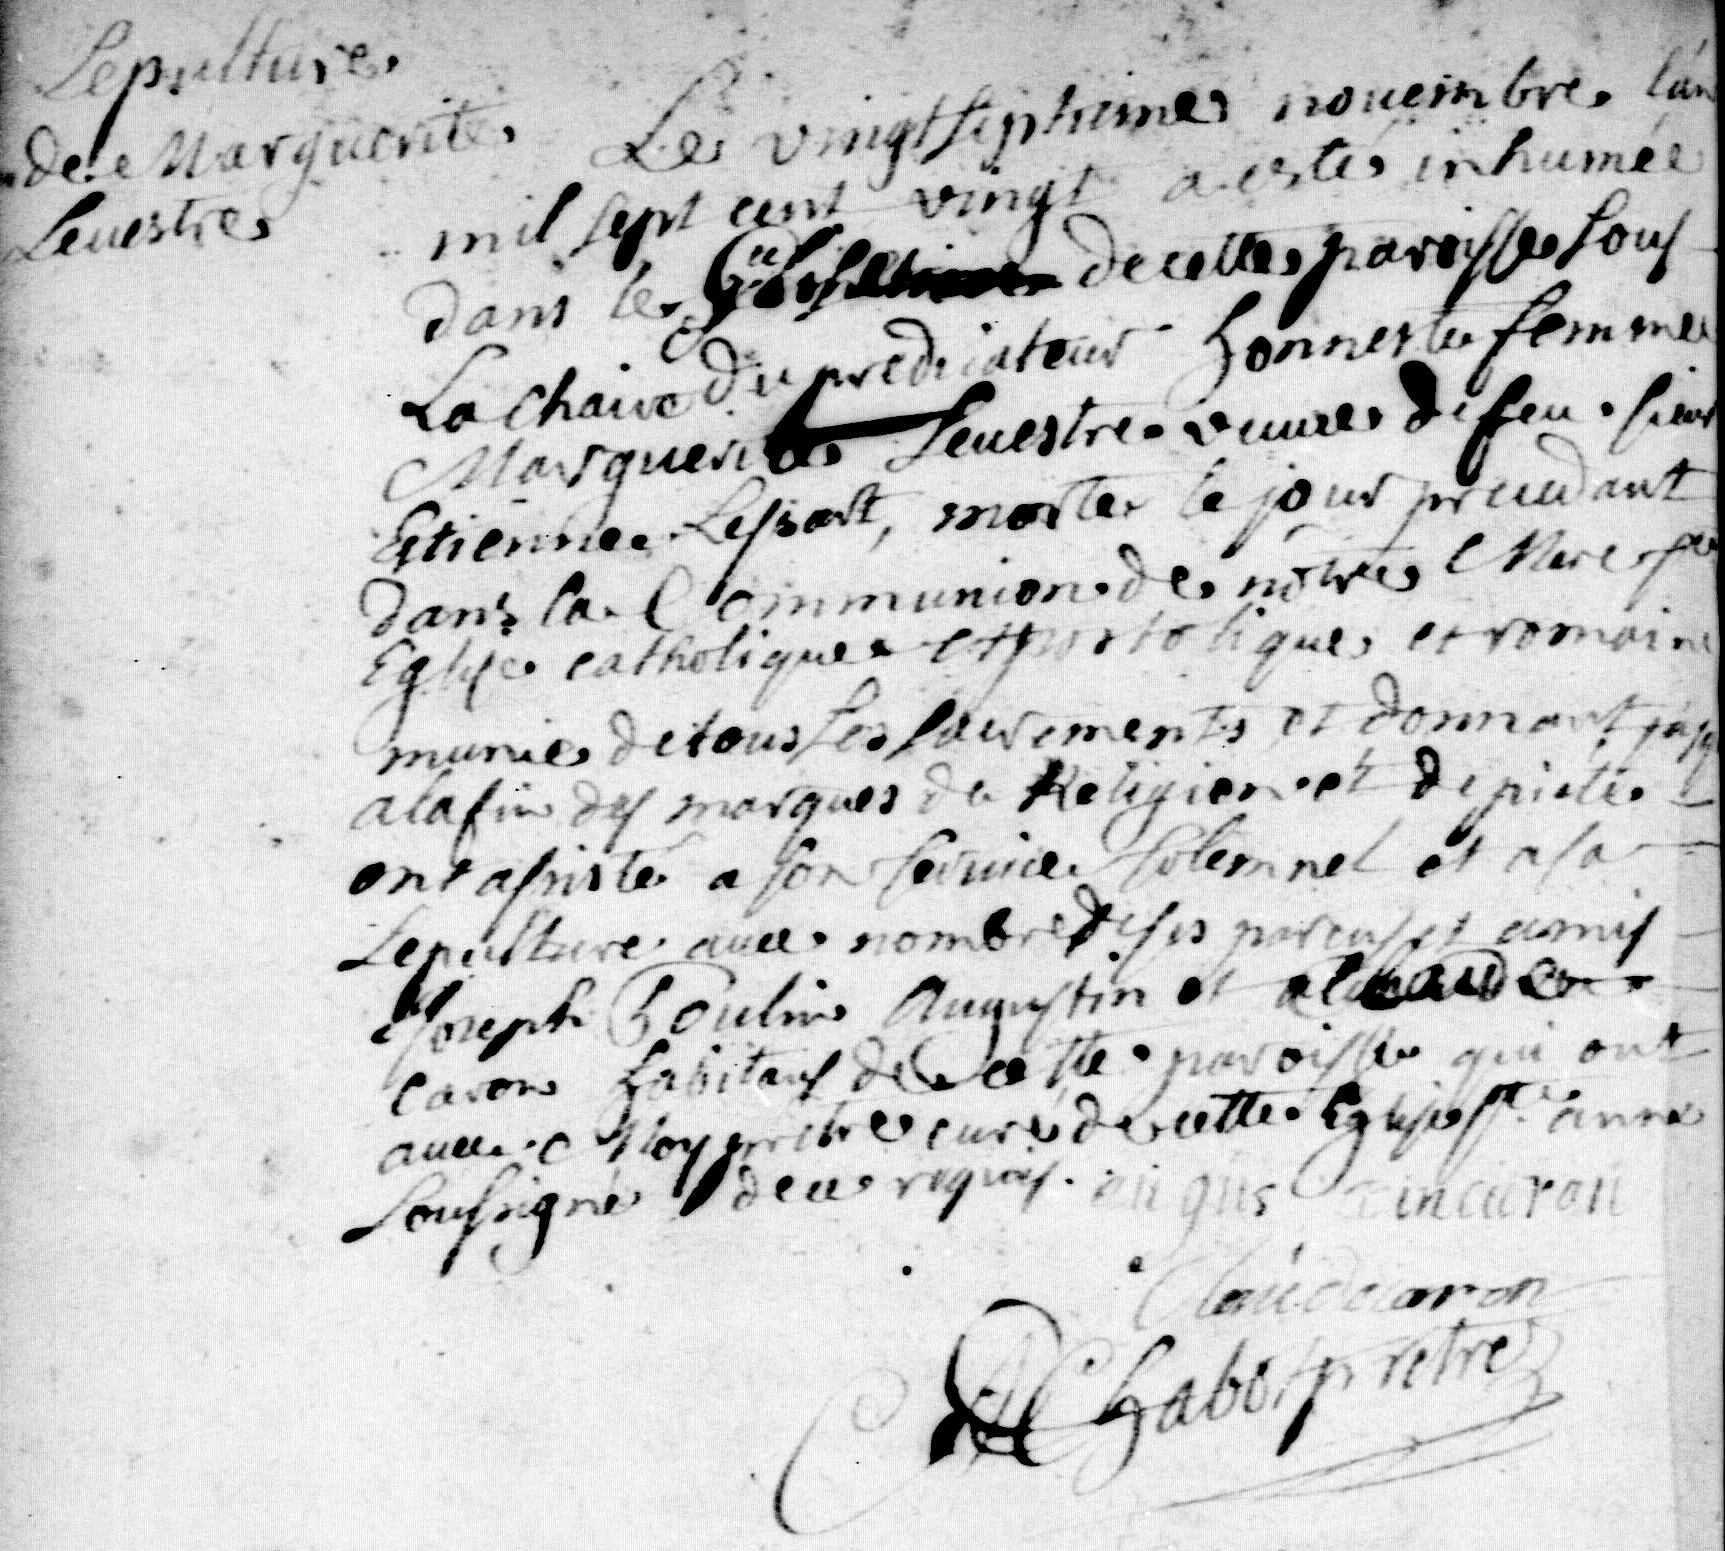 Sepulture
de Marguerite
Leuestre
Le vingtseptieme nouembre lan
mil sept cent vingt a esté inhumée
dans le de cette paroisse sous
La chaire du predicateur honneste femme
Marguerite Leuestre veuue de feu sieur
Estienne Lessart, morte le jour precedant
dans la Communion de nôtre Mere ste
Eglise catholique Apostolique et romaine
munie detous Les sacrements et donnant jusq
alafin des marques de Religion et de pieté
ont asisté a son seruice solemnel et asa
Sepulture auec nombre de ses parens et amis
Joseph Poulin Augustin et
caron habitans de cette paroisse qui ont
auec Moy prétre curé de cette Eglise ste anne
soussigné dece requis. augustin caron
Claude caron
Chabot prètre